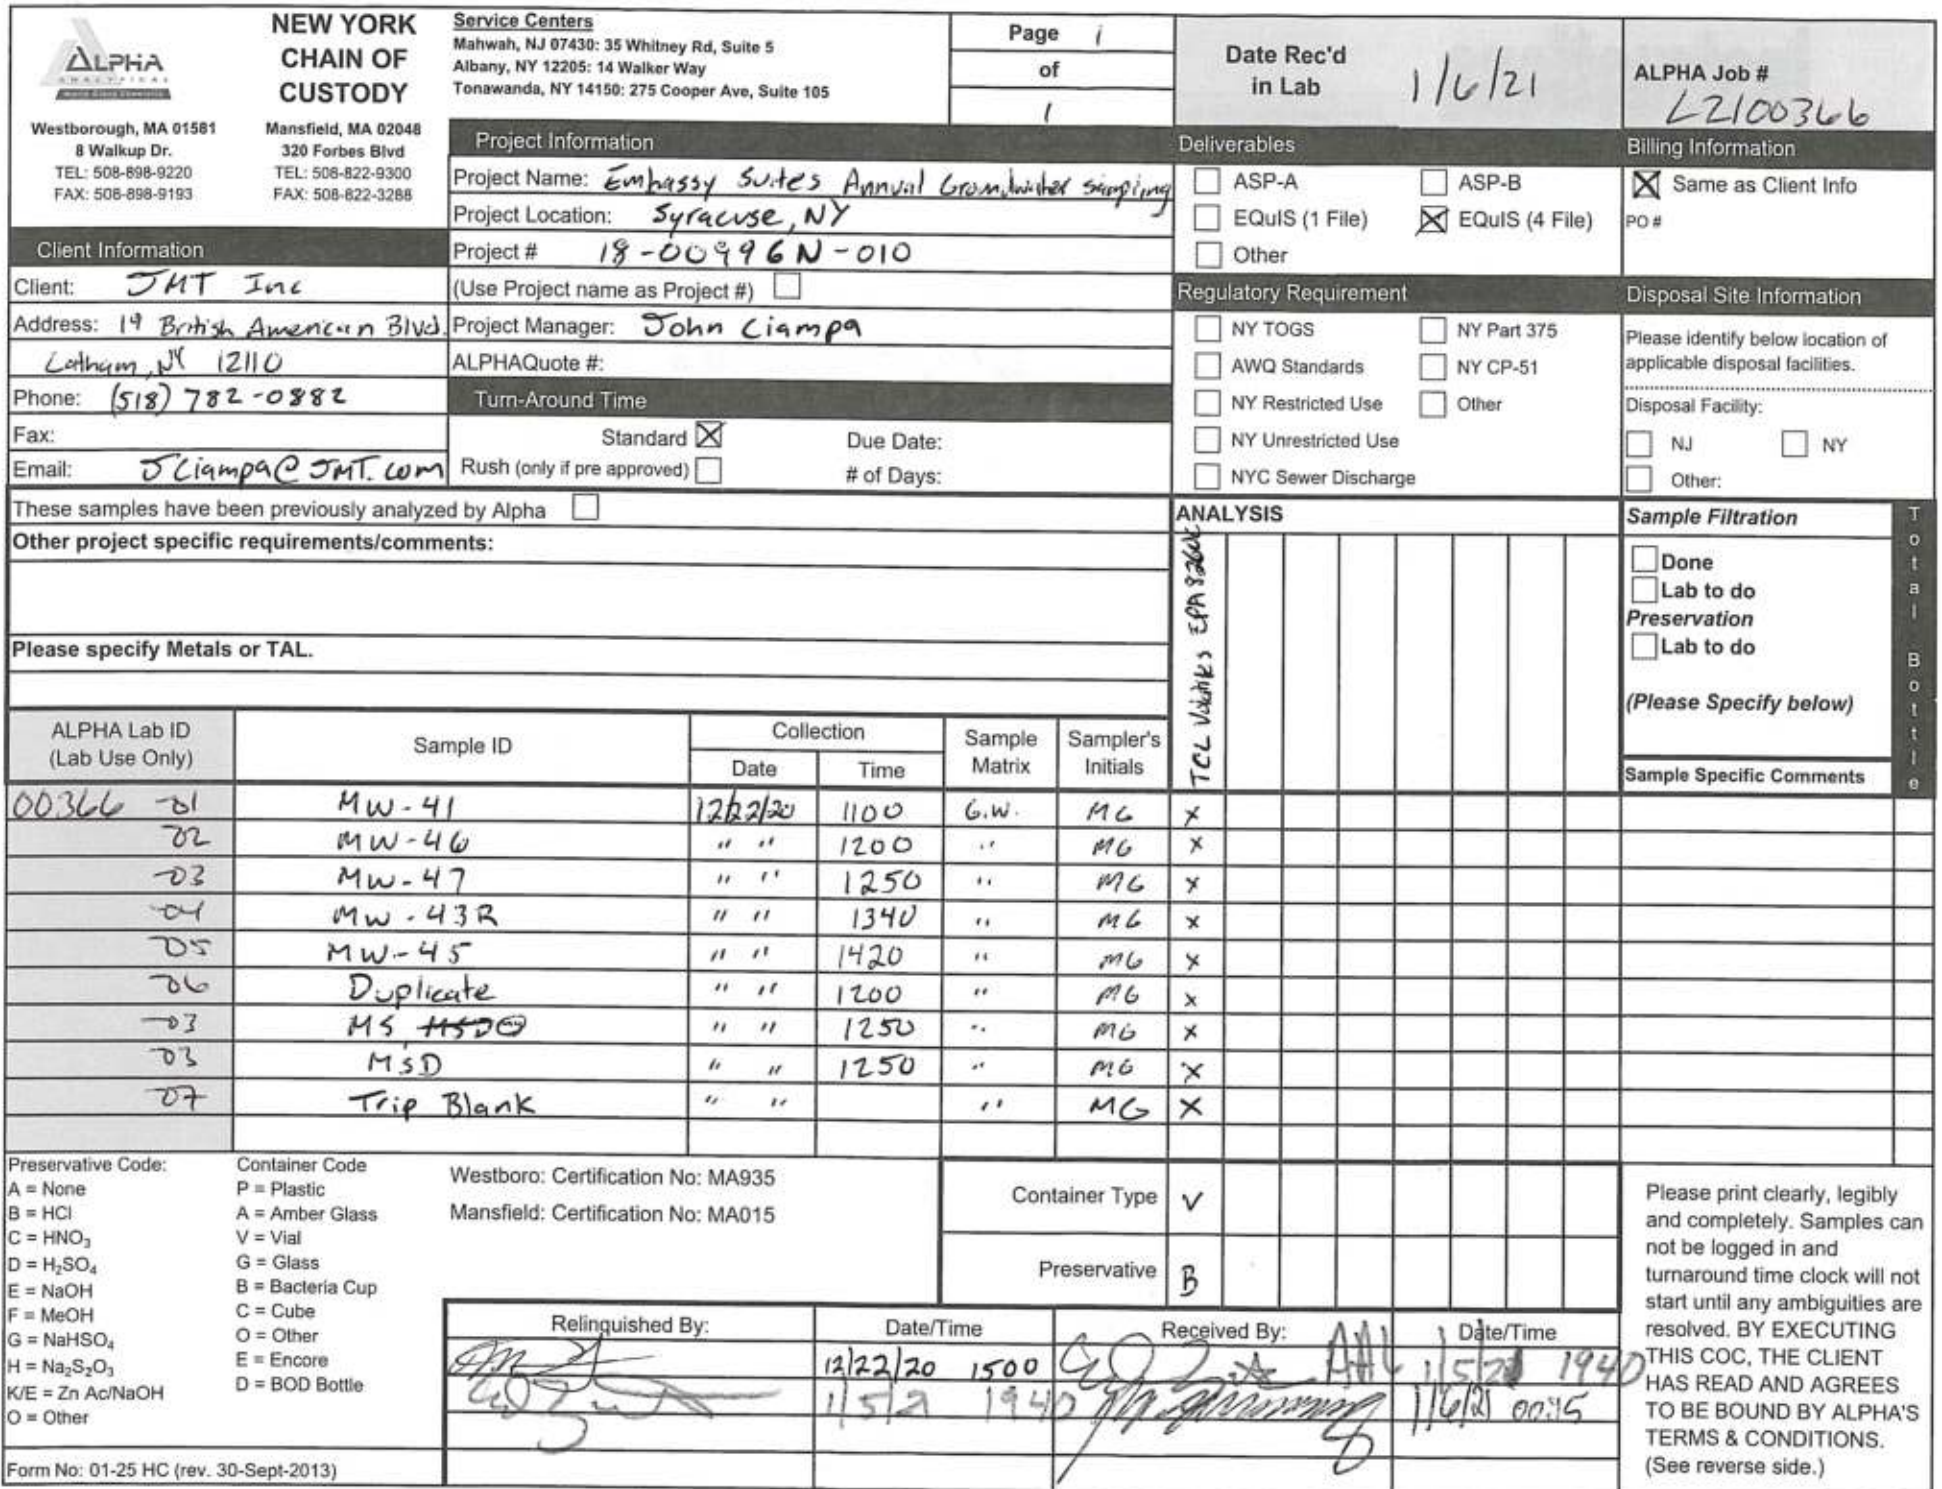 ALPHA
ANALYTICAL
World Class Chemistry
Westborough, MA 01581
8 Walkup Dr.
TEL: 508-898-9220
FAX: 508-898-9193
NEW YORK
CHAIN OF
CUSTODY
Mansfield, MA 02048
320 Forbes Blvd
TEL: 508-822-9300
FAX: 508-822-3288
Service Centers
Mahwah, NJ 07430: 35 Whitney Rd, Suite 5
Albany, NY 12205: 14 Walker Way
Tonawanda, NY 14150: 275 Cooper Ave, Suite 105
Page 1
of
1
Date Rec'd
in Lab
1/6/21
ALPHA Job #
L2100366
Client Information
Client: JMT Inc
Address: 19 British American Blvd.
Latham, NY 12110
Phone: (518) 782-0882
Fax:
Email: JCiampa@JMT.com
Project Information
Project Name: Embassy Suites Annual Groundwater Sampling
Project Location: Syracuse, NY
Project # 18-00996N-010
(Use Project name as Project #)
Project Manager: John Ciampa
ALPHAQuote #:
Turn-Around Time
Standard X Due Date:
Rush (only if pre approved) # of Days:
Deliverables
ASP-A ASP-B
EQuIS (1 File) X EQuIS (4 File)
Other
Regulatory Requirement
NY TOGS NY Part 375
AWQ Standards NY CP-51
NY Restricted Use Other
NY Unrestricted Use
NYC Sewer Discharge
Billing Information
X Same as Client Info
PO #
Disposal Site Information
Please identify below location of
applicable disposal facilities.
Disposal Facility:
NJ NY
Other:
These samples have been previously analyzed by Alpha
Other project specific requirements/comments:
Please specify Metals or TAL.
ANALYSIS
TCL Volatiles EPA 8260C
Sample Filtration
Done
Lab to do
Preservation
Lab to do
(Please Specify below)
Sample Specific Comments
Total Bottle
ALPHA Lab ID
(Lab Use Only)
Sample ID
Collection
Date Time
Sample
Matrix
Sampler's
Initials
00366 -01 MW-41 12/22/20 1100 G.W. MG X
-02 MW-46 " " 1200 " MG X
-03 MW-47 " " 1250 " MG X
-04 MW-43R " " 1340 " MG X
-05 MW-45 " " 1420 " MG X
-06 Duplicate " " 1200 " MG X
-03 MS MSD " " 1250 " MG X
-03 MSD " " 1250 " MG X
-07 Trip Blank " " " MG X
Preservative Code:
A = None
B = HCl
C = HNO3
D = H2SO4
E = NaOH
F = MeOH
G = NaHSO4
H = Na2S2O3
K/E = Zn Ac/NaOH
O = Other
Container Code
P = Plastic
A = Amber Glass
V = Vial
G = Glass
B = Bacteria Cup
C = Cube
O = Other
E = Encore
D = BOD Bottle
Westboro: Certification No: MA935
Mansfield: Certification No: MA015
Container Type V
Preservative B
Relinquished By: Date/Time Received By: Date/Time
12/22/20 1500 AAL 1/5/21 1940
1/5/21 1940 1/6/21 0015
Please print clearly, legibly
and completely. Samples can
not be logged in and
turnaround time clock will not
start until any ambiguities are
resolved. BY EXECUTING
THIS COC, THE CLIENT
HAS READ AND AGREES
TO BE BOUND BY ALPHA'S
TERMS & CONDITIONS.
(See reverse side.)
Form No: 01-25 HC (rev. 30-Sept-2013)